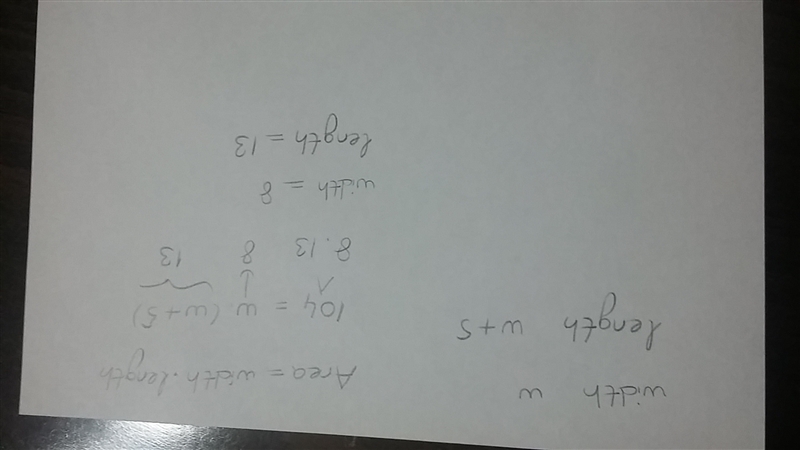 width w
length w+5
Area = width · length
104 = w (w+5)
8 · 13 8 13
width = 8
length = 13